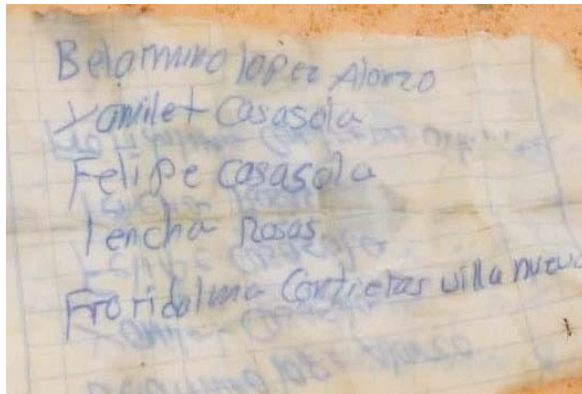 Belamino lopez Alonzo
Yamilet Casasola
Felipe casasola
lencha Rosas
Froridalma Contreras villa nueva